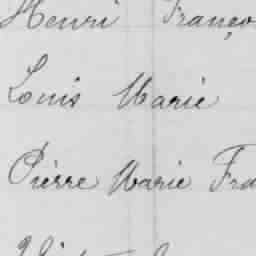 Henri Franço
Louis Marie
Pierre Marie Fra